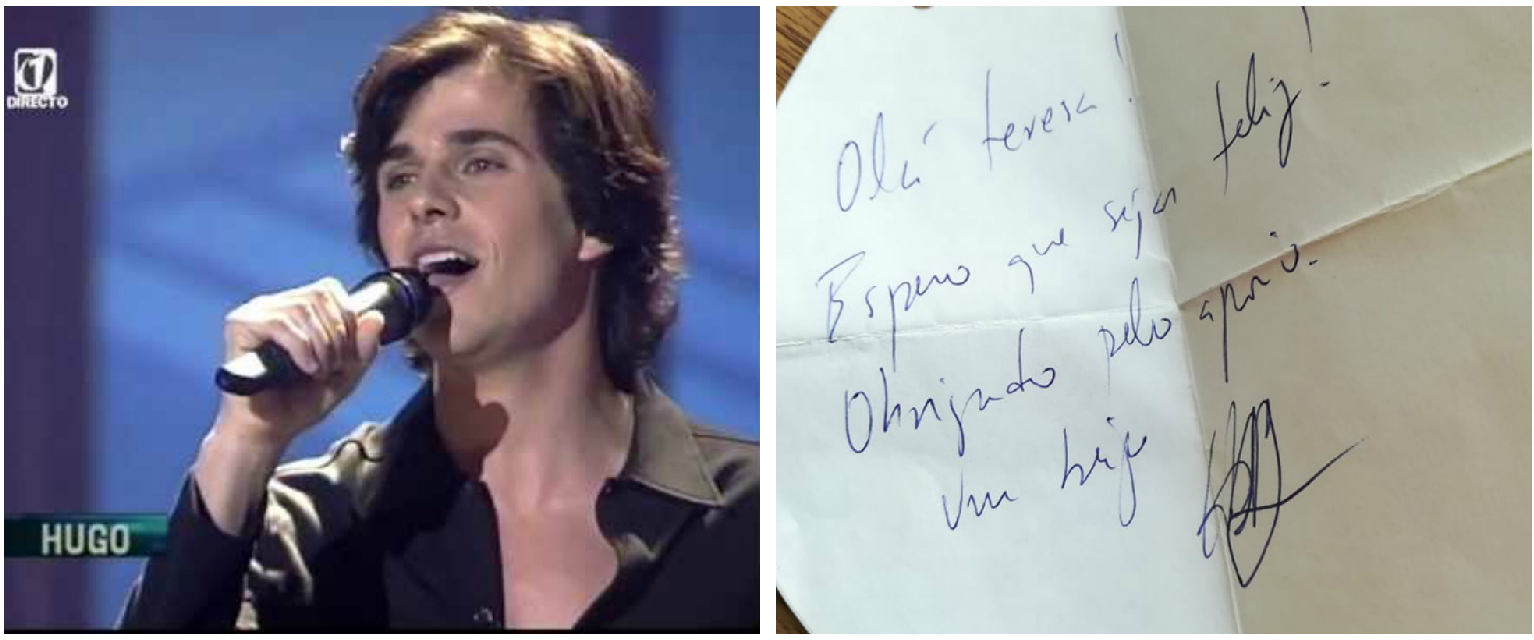 1
DIRECTO
HUGO
Olá teresa!
Espero que sejas feliz!
Obrigado pelo apoio.
Um beijo